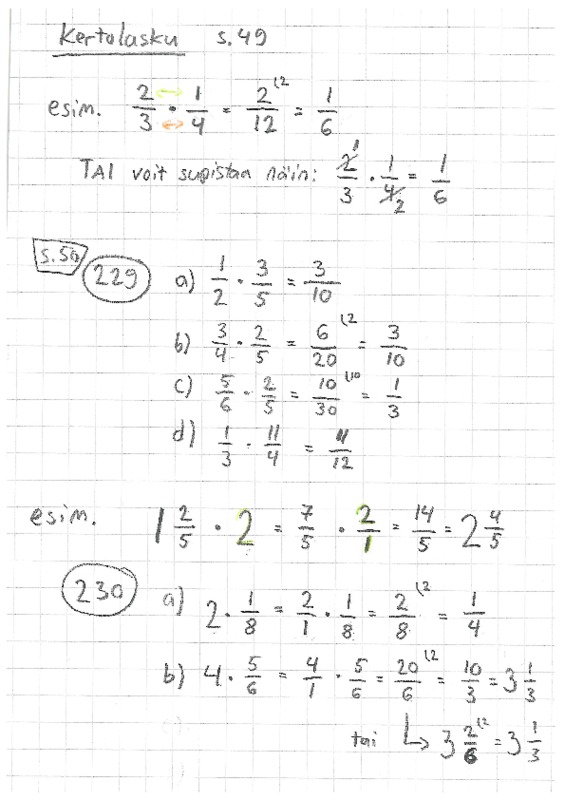 Kertolasku s.49
esim. 2/3 · 1/4 = 2/12 (2 = 1/6
TAI voit supistaa näin: 2̸ 1/3 · 1/4̸ 2 = 1/6
s.50
229 a) 1/2 · 3/5 = 3/10
b) 3/4 · 2/5 = 6/20 (2 = 3/10
c) 5/6 · 2/5 = 10/30 (10 = 1/3
d) 1/3 · 11/4 = 11/12
esim. 1 2/5 · 2 = 7/5 · 2/1 = 14/5 = 2 4/5
230 a) 2 · 1/8 = 2/1 · 1/8 = 2/8 (2 = 1/4
b) 4 · 5/6 = 4/1 · 5/6 = 20/6 (2 = 10/3 = 3 1/3
tai ↳ 3 2/6 (2 = 3 1/3